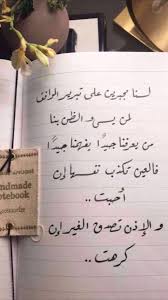 لسنا مجبرين على تبرير المواقف
لمن يسئ والظن بنا
من يعرفنا جيدًا يفهمنا جيدًا
فالعين تكذب نفسها إن
أحبت ..
و الأذن تصدق الغير إن
كرهت ..
ndmade
notebook